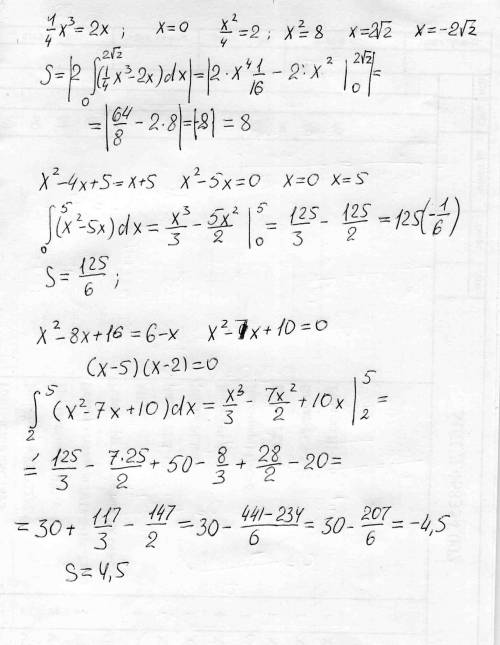 1/4 x³ = 2x ; x=0 x²/4 = 2 ; x² = 8 x = 2√2 x = -2√2
S = |2 ∫₀^{2√2} (1/4 x³ - 2x) dx| = |2 · x⁴ 1/16 - 2 · x² |₀^{2√2}| =
= |64/8 - 2·8| = |-8| = 8
x² - 4x + 5 = x + 5 x² - 5x = 0 x = 0 x = 5
∫₀⁵ (x² - 5x) dx = x³/3 - 5x²/2 |₀⁵ = 125/3 - 125/2 = 125(-1/6)
S = 125/6 ;
x² - 8x + 16 = 6 - x x² - 7x + 10 = 0
(x-5)(x-2) = 0
∫₂⁵ (x² - 7x + 10) dx = x³/3 - 7x²/2 + 10x |₂⁵ =
= 125/3 - 7·25/2 + 50 - 8/3 + 28/2 - 20 =
= 30 + 117/3 - 147/2 = 30 - (441-234)/6 = 30 - 207/6 = -4,5
S = 4,5